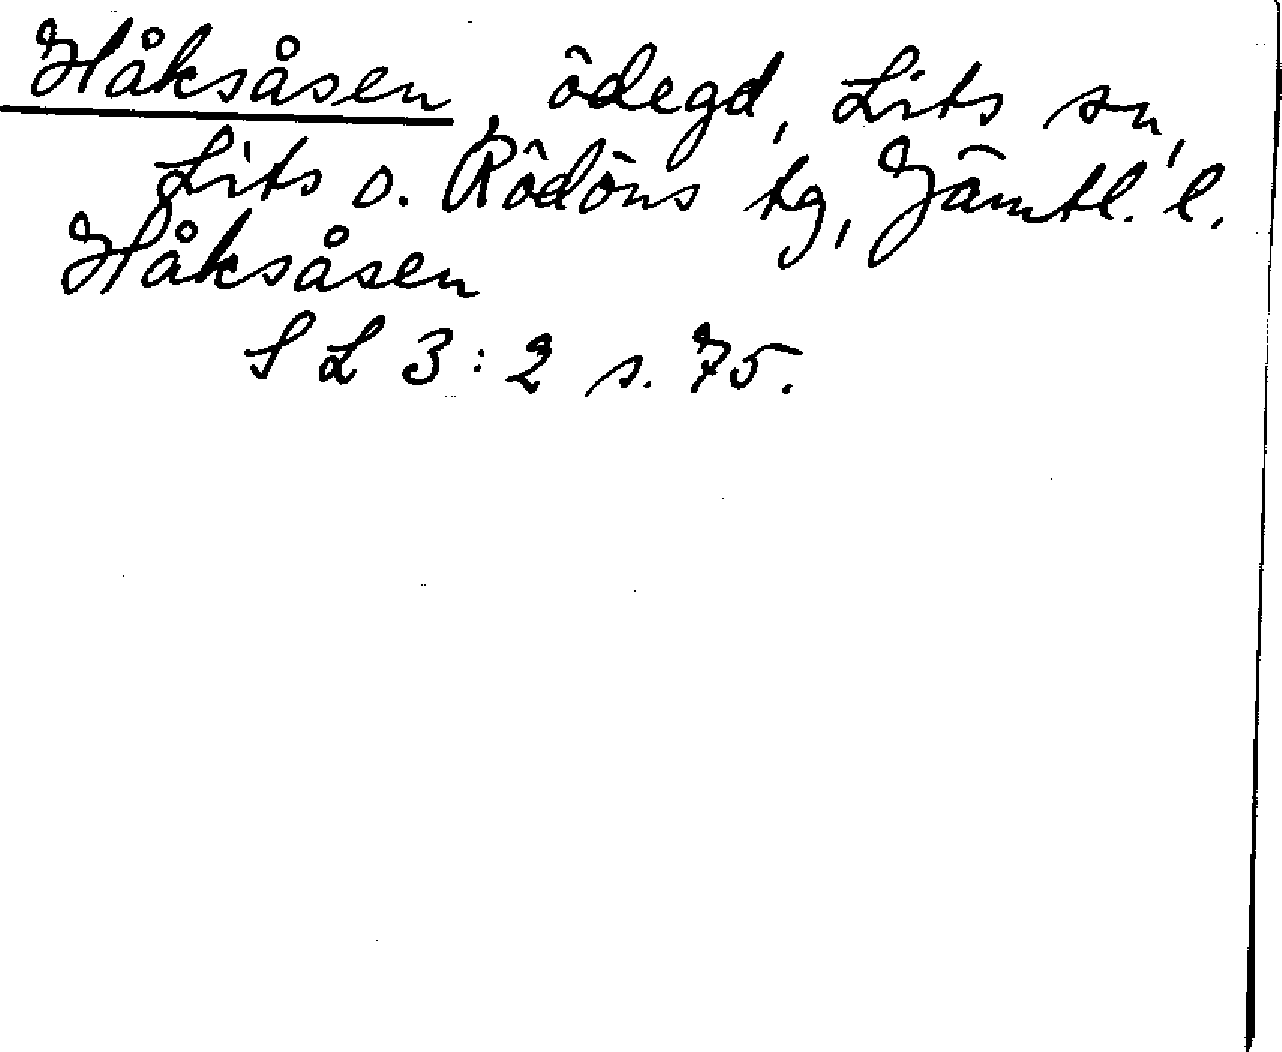 Håksåsen, ödegd, Lits sn,
Lits o. Rödöns tg, Jämtl. l.
Håksåsen
S L 3:2 s. 75.